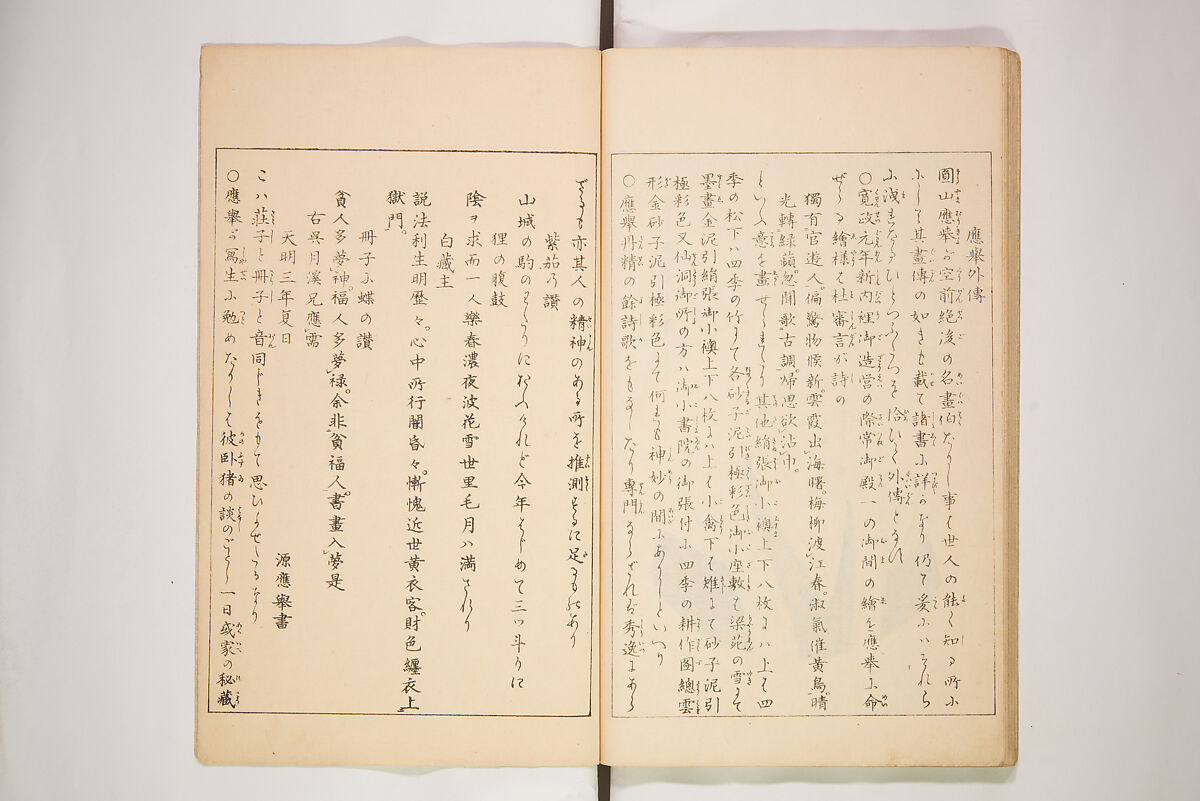 應舉外傳
圓山應舉が空前絶後の名畫伯なりし事は世人の能く知る所に
して其畫傳の如きも載て諸書に詳かなり仍て爰にハそれら
に洩れたる 拾ひて外傳となん
○寛政元年新内裡御造営の際常御殿一の御間の繪を應舉に命
ぜらる繪様は杜審言が詩の
獨有官遊人。偏驚物候新。雲霞出海曙。梅柳渡江春。淑氣催黄鳥。晴
光轉緑蘋。忽聞歌古調。帰思欲沾巾。
といふ意を畫せしまてり其他絹張御小襖上下八枚にハ上は四
季の松下ハ四季の竹にて各砂子泥引極彩色御小座敷は梁苑の雪にて
墨畫金泥引絹張御小襖上下八枚にハ上は小禽下は雉にて砂子泥引
極彩色又仙洞御所の方ハ御小書院の御張付に四季の耕作圖總雲
形金砂子泥引極彩色にて何れも神妙の間にありしといへり
○應舉丹精の餘詩歌をもなしたり専門ならざれば秀逸にあら
ざるも亦其人の精神のある所を推測するに足るものあり
紫茄の讃
山城の駒のわたりにおふれど今年はじめて三ツ斗りに
狸の腹鼓
陰ヲ求而一人樂春濃夜波花雪世里毛月ハ満されり
白藏主
説法利生明歴々。心中所行闇昏々。慚愧近世黄衣客。財色纏衣上
獄門。
冊子に蝶の讃
貧人多夢神。福人多夢禄。余非貧福人。書畫入夢是
右呉月溪兄應需
天明三年夏日
源應舉書
こハ荘子と冊子と音同じきをもて思ひよせたるなり
○應舉が寫生に勉めたりしは彼臥猪の談のごとし一日或家の秘藏